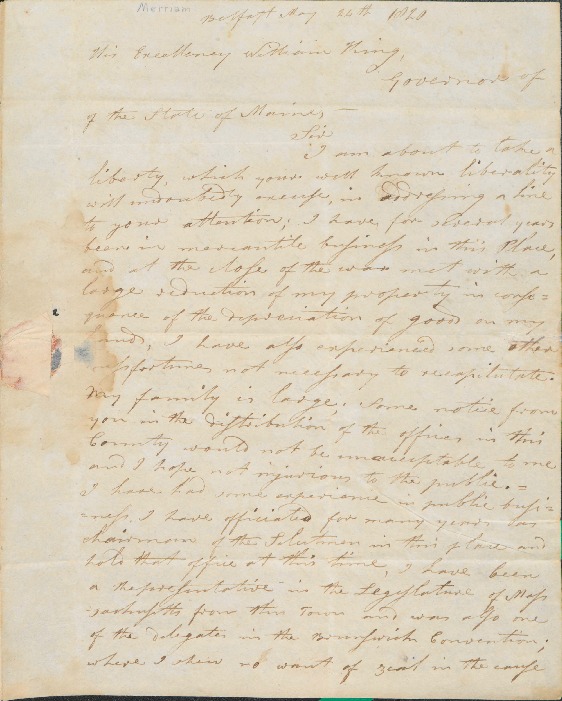 Merriam
Belfast May 24th 1820
His Excellency William King,
Governor of
of the State of Maine,
Sir
I am about to take a
liberty, which your well known liberality
will undoubtedly excuse, in addressing a line
to your attention; I have, for several years
been in mercantile business in this Place,
and at the close of the war met with a
large reduction of my property in conse=
quence of the depreciation of goods on my
hands; I have also experienced some other
misfortunes not necessary to recapitulate.
My family is large; Some notice from
you in the distribution of the offices in this
County would not be unacceptable to me
and I hope not injurious to the public.=
I have had some experience in public busi=
=ness. I have officiated for many years as
chairman of the Selectmen in this place and
hold that office at this time, I have been
a Representative in the Legislature of Mass
=achusetts from this Town and was also one
of the delegates in the Brunswick Convention;
where I shew no want of zeal in the cause